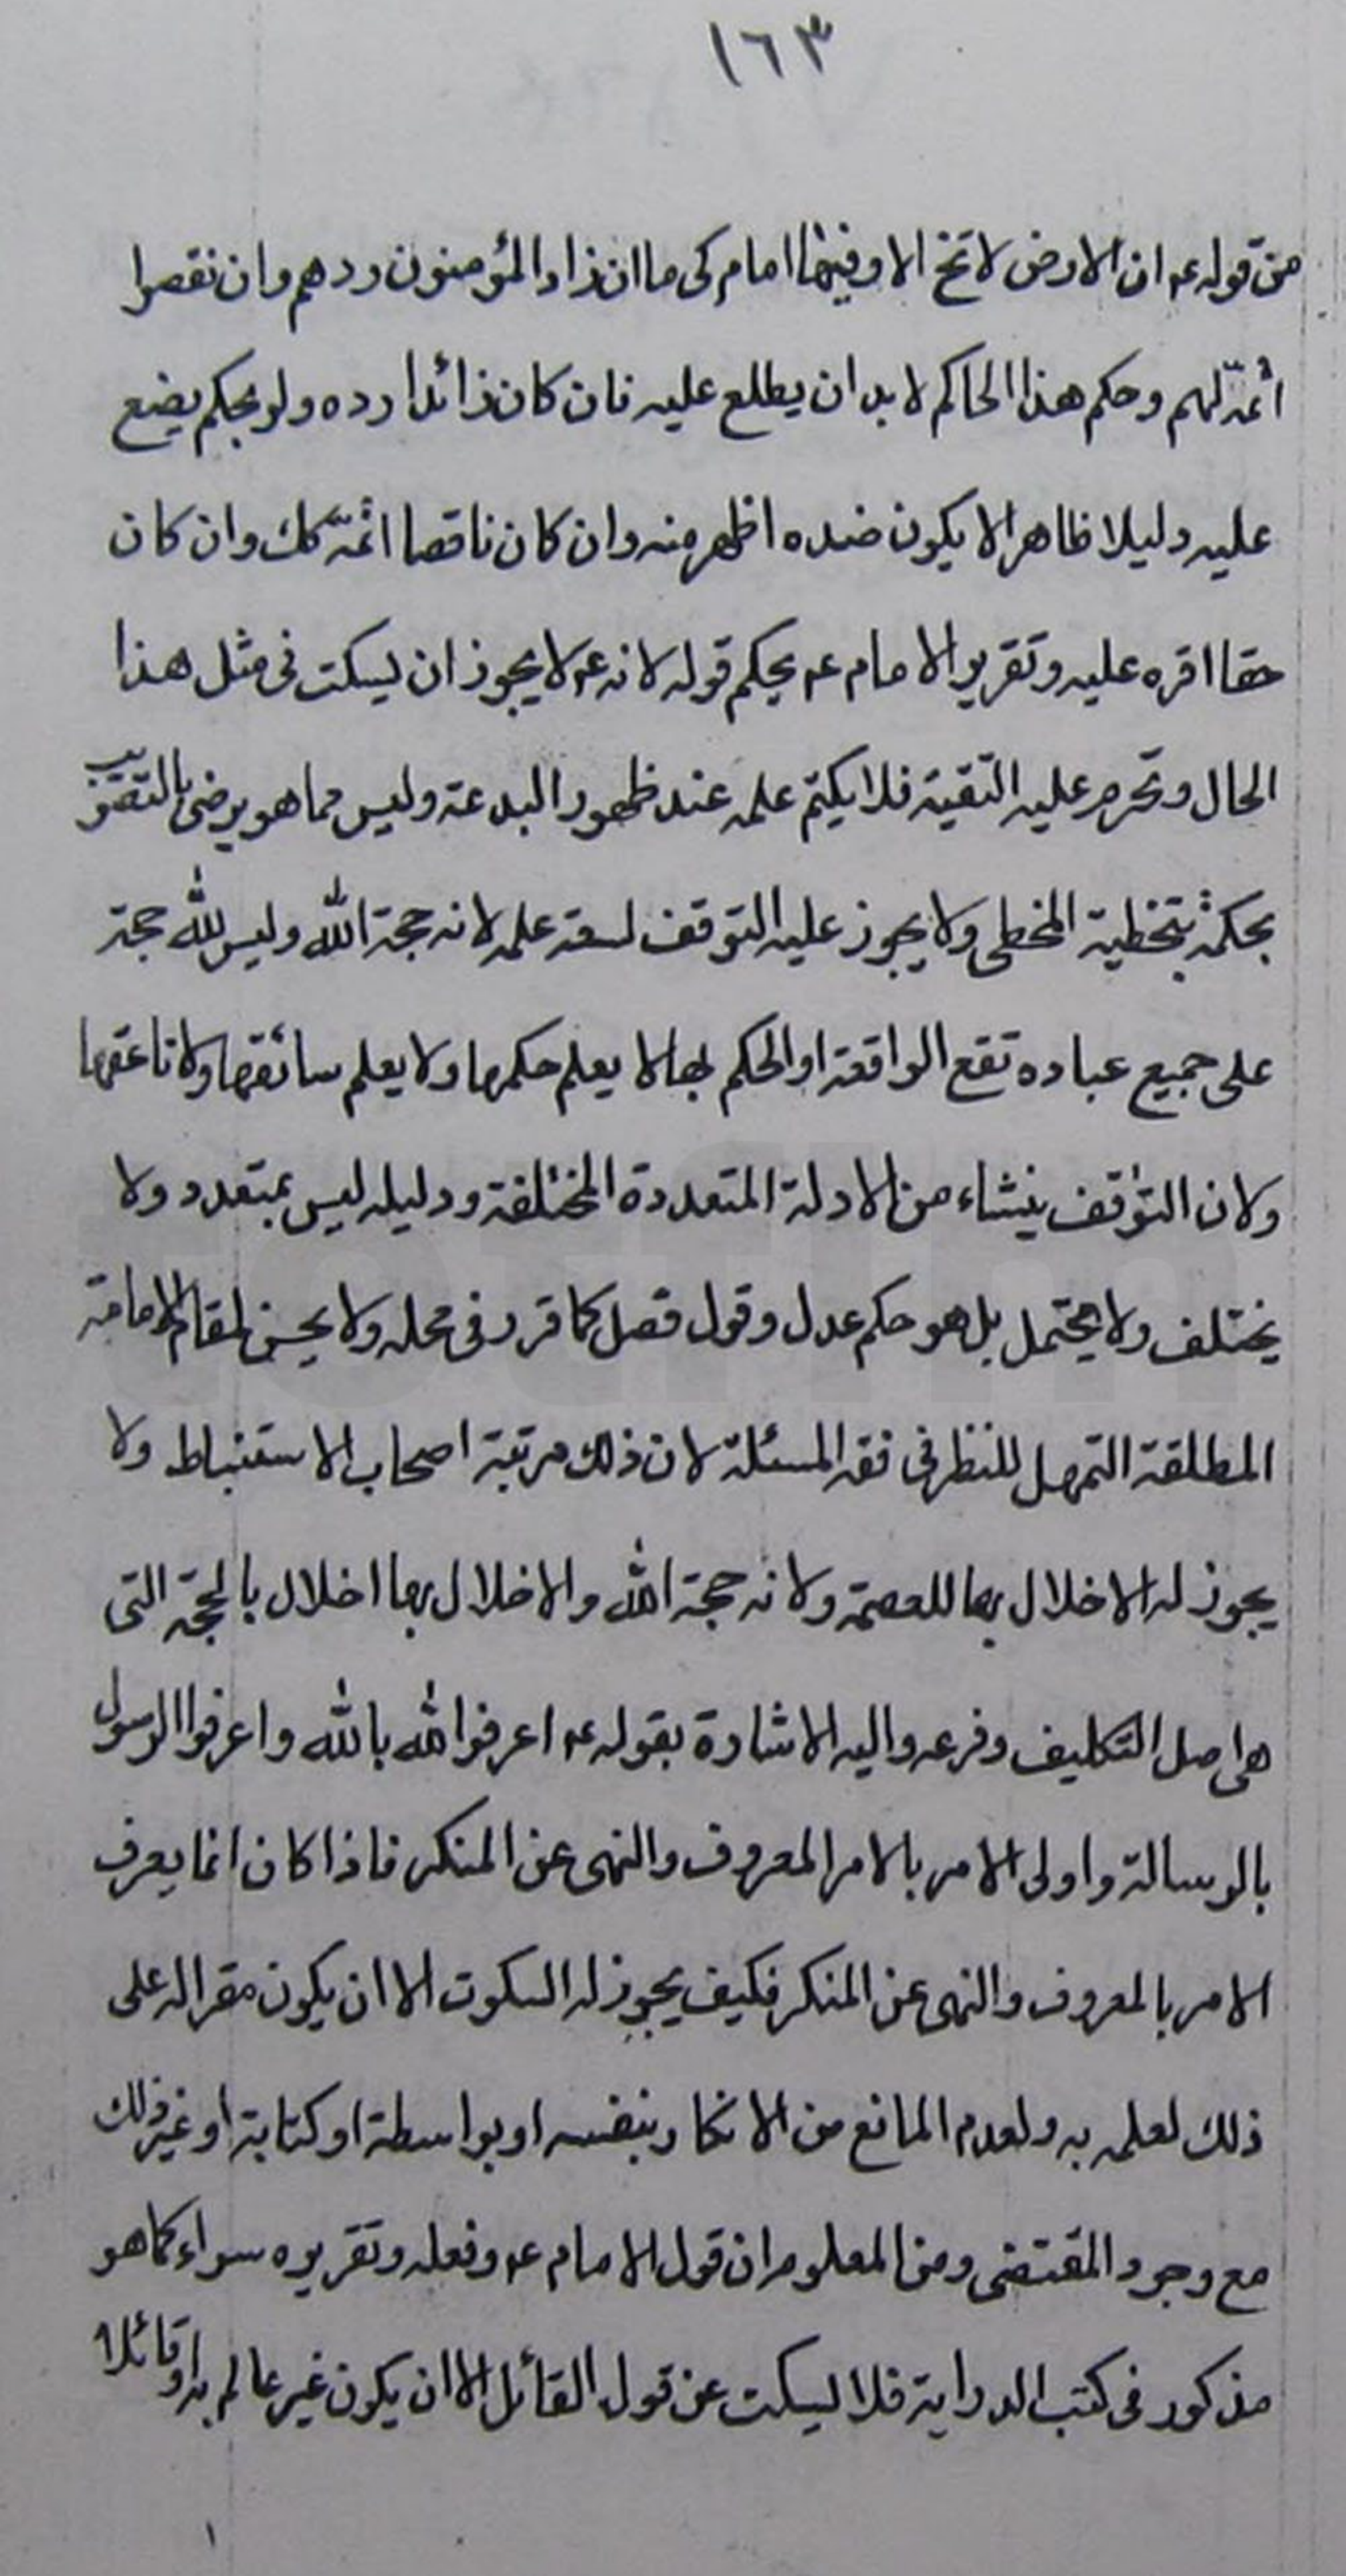 ١٦٣
من قوله ع ان الارض لا تخ الا وفيها امام كى ما ان زاد المؤمنون ردهم وان نقصوا
اتمه لهم وحكم هذا الحاكم لا بد ان يطلع عليه فان كان زائدا رده ولو بحكم يضع
عليه دليلا ظاهرا لا يكون ضده اظهر منه وان كان ناقصا اتمه كك وان كان
حقا اقره عليه وتقرير الامام ع يحكم قوله لانه ع لا يجوز ان يسكت فى مثل هذا
الحال وتحرم عليه التقية فلا يكتم علمه عند ظهور البدعة وليس مما هو يرضى
بحكمه بتخطية المخطى ولا يجوز عليه التوقف لسعة علمه لانه حجة الله وليس لله حجة
على جميع عباده تقع الواقعة او الحكم بها لا يعلم حكمها ولا يعلم سائقها ولا ناعقها
ولان التوقف ينشاء من الادلة المتعددة المختلفة ودليله ليس بمتعدد ولا
يختلف ولا يحتمل بل هو حكم عدل وقول فصل كما قرر فى محله ولا يحسن لمقام الامامة
المطلقة التمهل للنظر فى فقه المسئلة لان ذلك مرتبة اصحاب الاستنباط ولا
يجوز له الاخلال بها للعصمة ولانه حجة الله والاخلال بها اخلال بالحجة التى
هى اصل التكليف وفرعه واليه الاشارة بقوله ع اعرفوا الله بالله واعرفوا الرسول
بالرسالة واولى الامر بالامر المعروف والنهى عن المنكر فاذا كان انما يعرف
الامر بالمعروف والنهى عن المنكر فكيف يجوز له السكوت الا ان يكون مقرا له على
ذلك لعلمه به ولعدم المانع من الانكار بنفسه او بواسطة او كتابة او غير ذلك
مع وجود المقتضى ومن المعلوم ان قول الامام ع وفعله وتقريره سواء كما هو
مذكور فى كتب الدراية فلا يسكت عن قول القائل الا ان يكون غير عالم به او قائلا